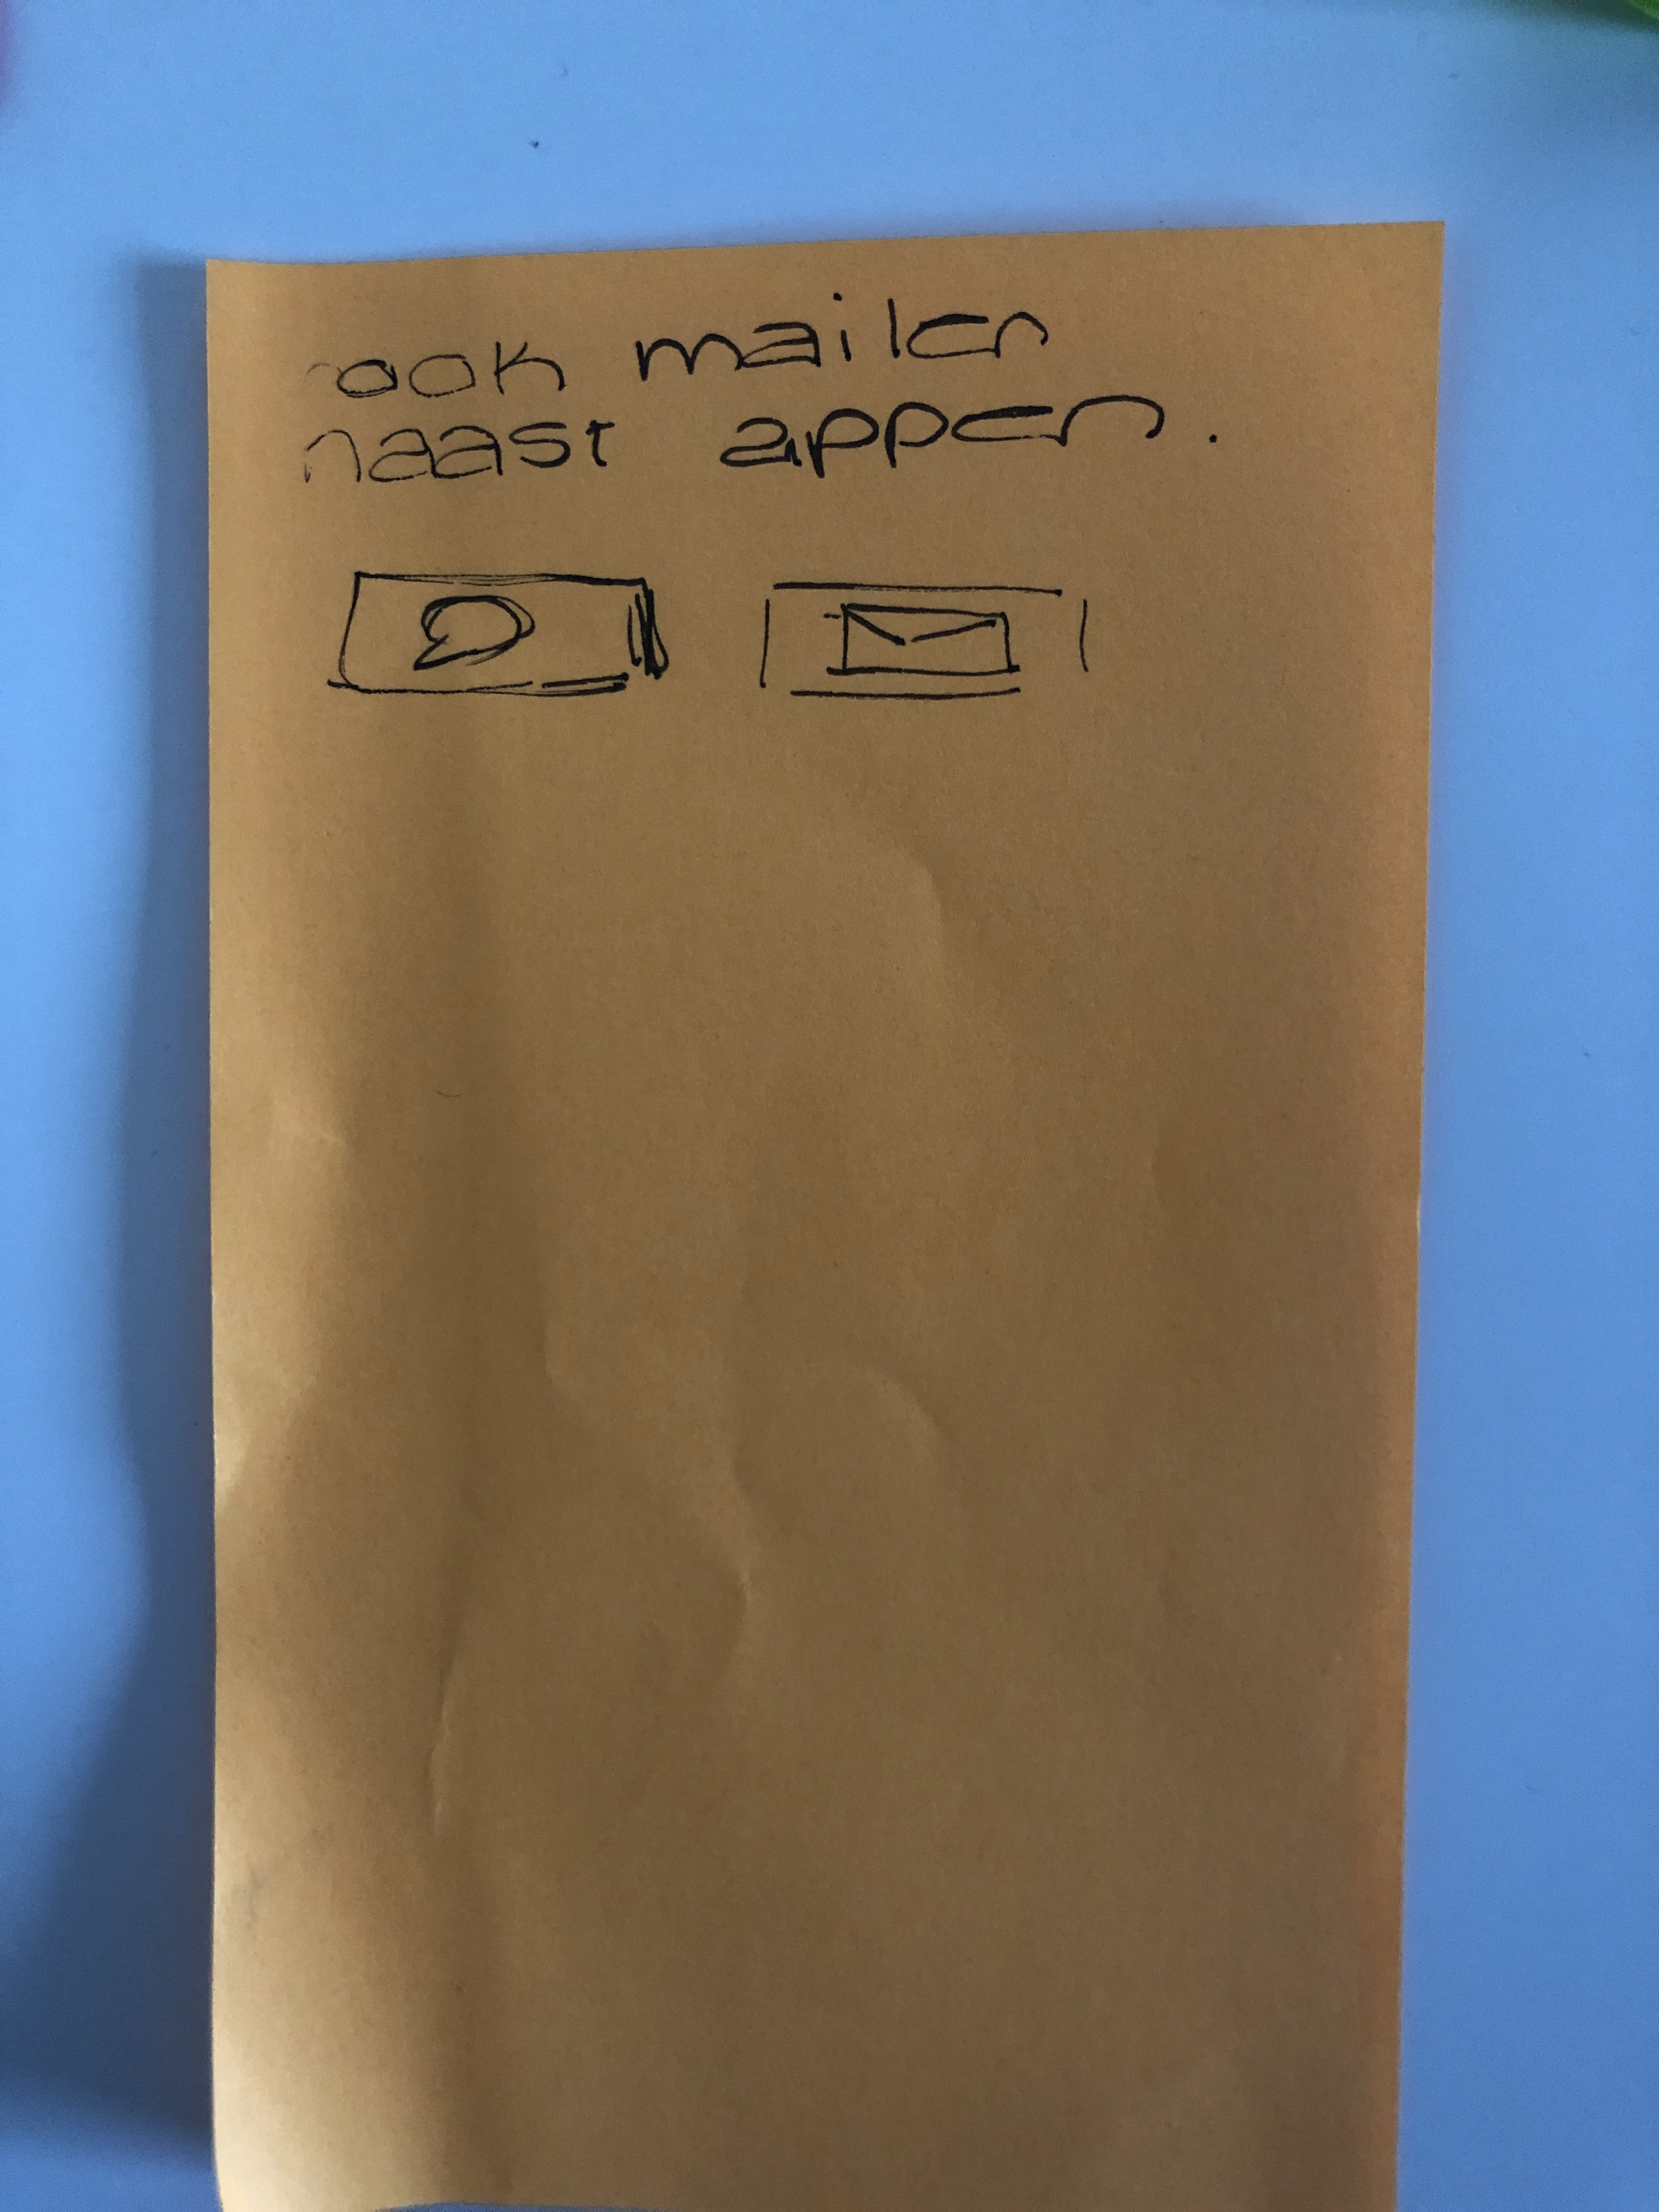 ook mailen
naast appen.